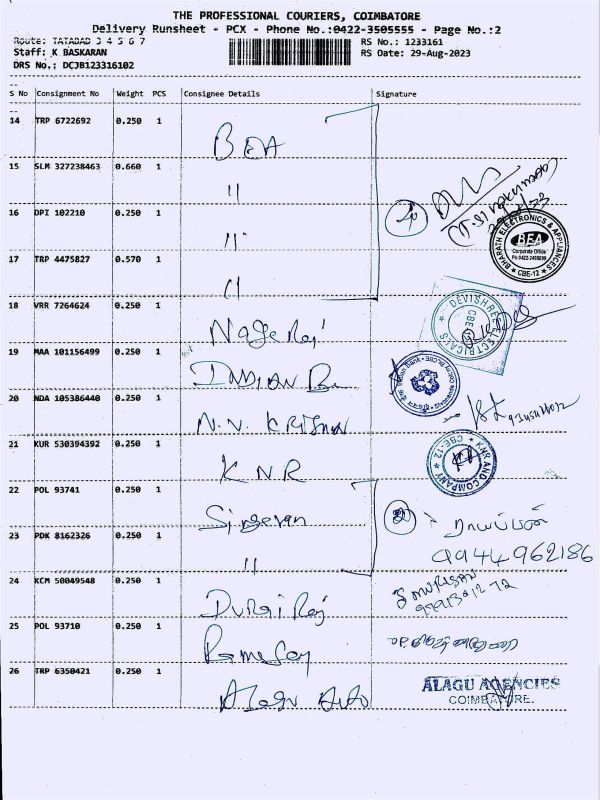 THE PROFESSIONAL COURIERS, COIMBATORE
Delivery Runsheet - PCX - Phone No.:0422-3505555 - Page No.:2
Route: TATABAD 3 4 5 6 7
RS No.: 1233161
Staff: K BASKARAN
RS Date: 29-Aug-2023
DRS No.: DCJB123316102
S No Consignment No Weight PCS Consignee Details Signature
14 TRP 6722692 0.250 1 BEA
15 SLM 327238463 0.660 1 "
16 DPI 102210 0.250 1 "
17 TRP 4475827 0.570 1 "
BHARATH ELECTRONICS & APPLIANCES
BEA
Corporate Office
CBE-12
18 VRR 7264624 0.250 1 Nage Raj
DEVISHREE ELECTRICALS
CBE
19 MAA 101156499 0.250 1 INDIAN
20 NDA 105386440 0.250 1 N.N. KRISHNA
21 KUR 530394392 1 0.250 KNR
KNR AND COMPANY
CBE-12
22 POL 93741 0.250 1 Singeran
23 PDK 8162326 0.250 1 "
9944962186
24 KCM 50049548 0.250 1 Durai Raj
MURUGAN
25 POL 93710 0.250 1
26 TRP 6350421 0.250 1 Alagu Auto
ALAGU AGENCIES
COIMBATORE.